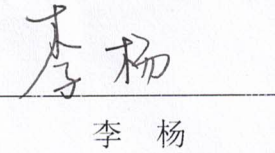 李杨
李 杨